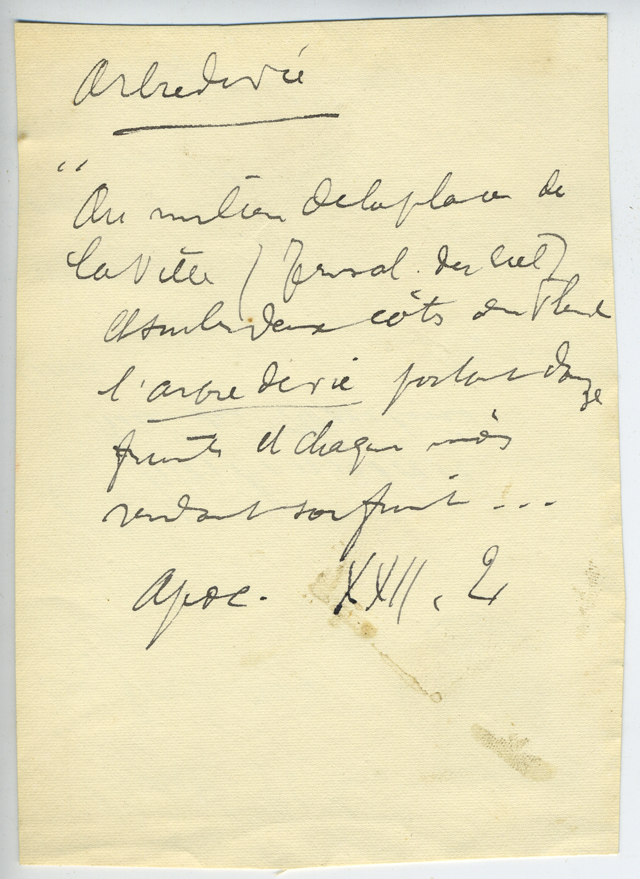 Arbre de vie
"
Au milieu de la place de
la Ville (Jérusal. du ciel)
et sur les deux côtés du fleuve
l'arbre de vie portant douze
fruits et chaque mois
rendant son fruit ...
Apoc. XXII, 2